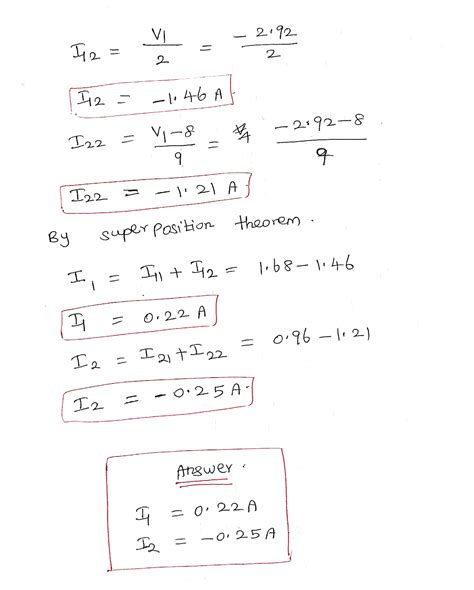 I12 = V1/2 = -2.92/2
I12 = -1.46 A
I22 = V1-8/9 = -2.92-8/9
I22 = -1.21 A
By superposition theorem.
I1 = I11 + I12 = 1.68-1.46
I1 = 0.22 A
I2 = I21+I22 = 0.96-1.21
I2 = -0.25A.
Answer.
I1 = 0.22A
I2 = -0.25A